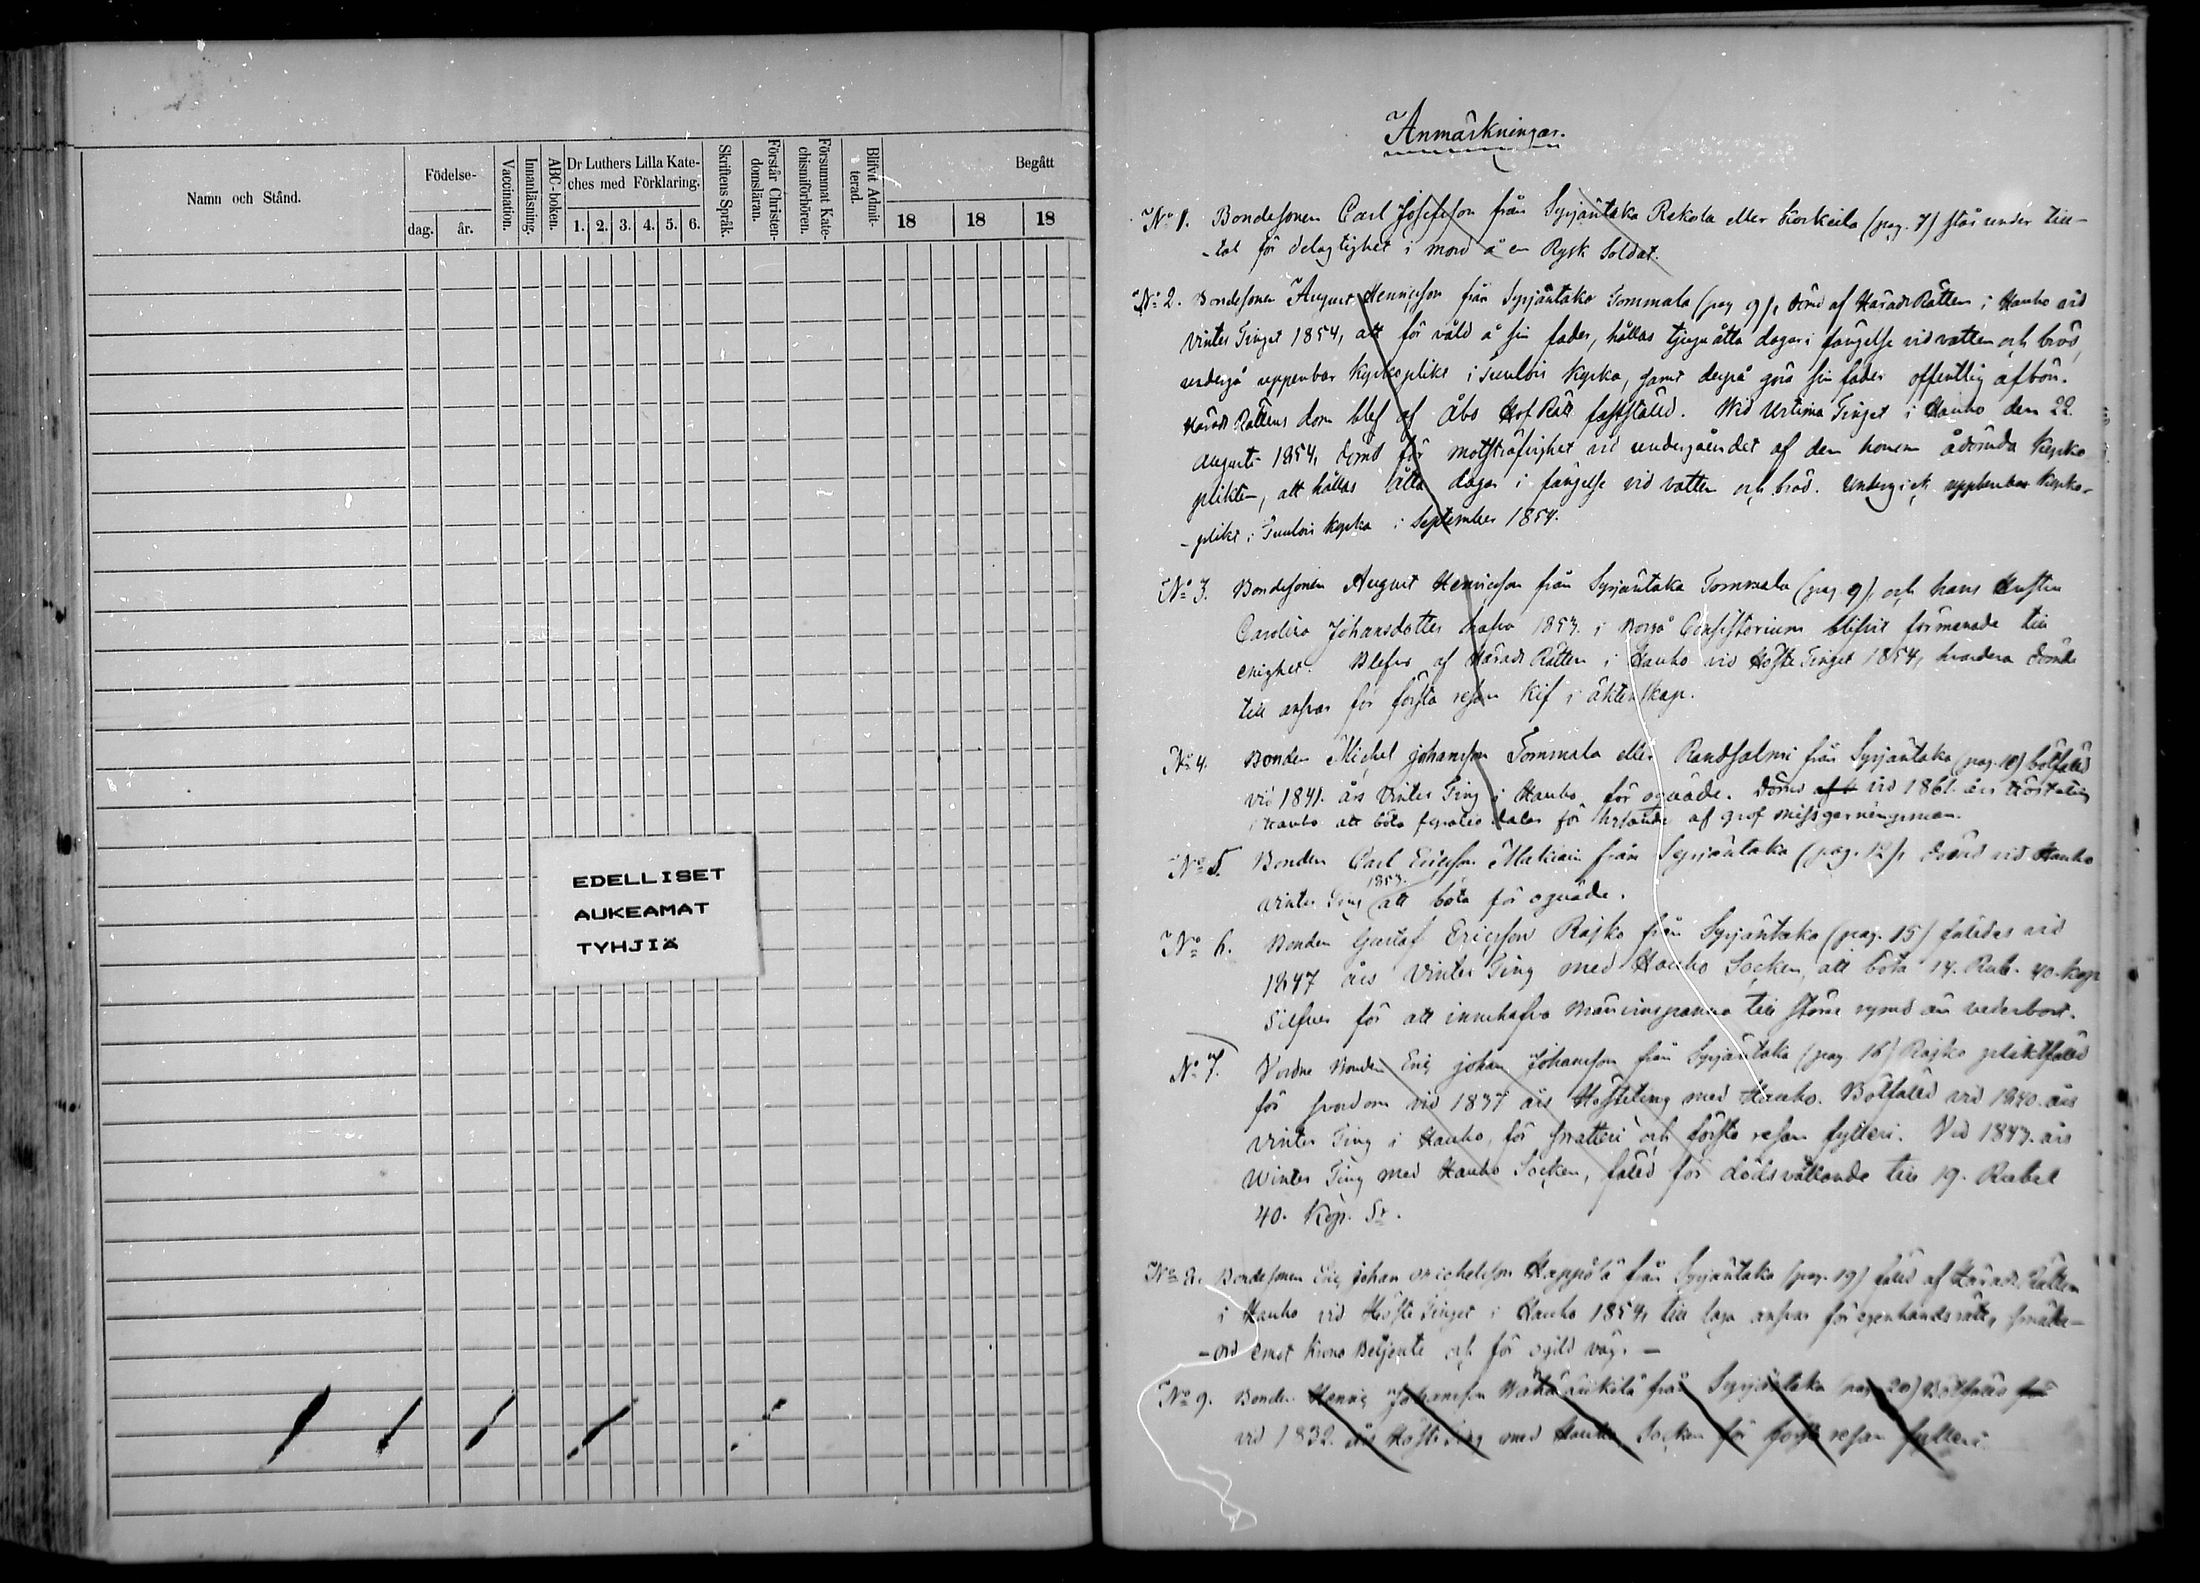 Namn och Stånd.
Födelse-
dag.
år.
Vaccination.
Innanläsning.
ABC-boken.
Dr Luthers Lilla Kate-
ches med Förklaring.
1. 2. 3. 4. 5. 6.
Skriftens Språk.
Förstår Christen-
domsläran.
Försummat Kate-
chismiförhören.
Blifvit Admit-
terad.
Begått
18 18 18
EDELLISET
AUKEAMAT
TYHJIÄ
Anmärkningar.
No 1. Bondesonen Carl Josefsson från Syrjäntaka Rekola eller Korkeila (pag. 7) står under till-
-tal för delagtighet i mord å en Rysk Soldat.
No 2. Bondesonen August Henricsson från Syrjäntaka Tommala (pag 9), dömd af HäradsRätten i Hauho vid
Vinter Tinget 1854, att för våld å sin fader, hållas tjuguåtta dagar i fängelse vid vatten och bröd,
undergå uppenbar Kyrkoplikt i Tuulois Kyrka, samt derpå göra sin fader offentlig afbön.
Härads Rättens dom blef af Åbo HofRätt fastställd. Wid Urtima Tinget i Hauho den 22
Augusti 1854, dömd för motsträfvighet vid undergåendet af den honom ådömda Kyrko
plikten, att hållas åtta dagar i fängelse vid vatten och bröd. Undergick uppenbar Kyrko-
-plikt i Tuulois Kyrka i September 1854.
No 3. Bondesonen August Henricsson från Syrjäntaka Tommala (pag 9), och hans Hustru
Carolina Johansdotter hafva 1853. i Borgå Consistorium blifvit förmanade till
enighet. Blefvo af Härads Rätten i Hauho vid HösteTinget 1854, hvardera dömde
till ansvar för första resan Kif i äktenskap.
No 4. Bonden Michel Johansson Tommala eller Randsalmi från Syrjäntaka (pag. 10) botfälld
vid 1841. års Vinter Ting i Hauho för oqväde. Dömd af vid 1861. års Hösteting
i Hauho att böta daler för af grof missgerningsman.
No 5. Bonden Carl Ericsson Matiain från Syrjäntaka (pag. 12), dömd vid Hauho
Vinter Ting 1853. att böta för oqväde.
No 6. Bonden Gustaf Ericsson Rajko från Syrjäntaka (pag. 15) fälldes vid
1847 års Vinter Ting med Hauho Socken, att böta 14. Rub. 40. kop
Silfver för att innehafva Bränvinspanna till större rymd än vederbort.
No 7. Vordne Bonden Eric Johan Johansson från Syrjäntaka (pag. 16) Rajko pliktfälld
för svordom vid 1837 års Hösteting med Hauho. Botfälld vid 1840. års
Vinter Ting i Hauho, för snatteri och första resan fylleri. Vid 1843. års
Winter Ting med Hauho Socken, fälld för dödsvållande till 19. Rubel
40. Kop. Sr.
No 8. Bondesonen Eric Johan Michelsson Kappola från Syrjäntaka (pag. 19) fälld af Härads Rätten
i Hauho vid Höste Tinget i Hauho 1854, till laga ansvar för egenhandsrätt, smäde-
-ord emot Krono Betjente och för ogild väg. -
No 9. Bonden Henric Johansson från Syrjäntaka (pag. 20) Botfälld för
vid 1832. års Höste Ting med Hauho Socken för första resan fylleri.